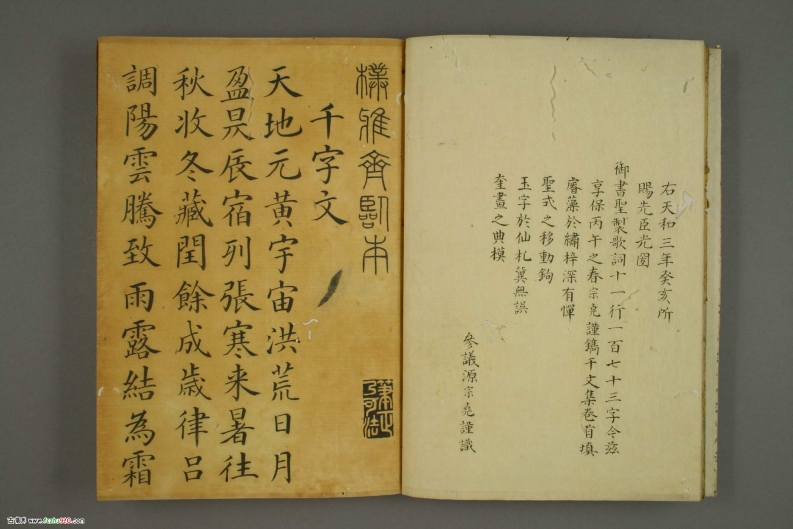 右天和三年癸亥所
賜先臣光圀
御書聖製歌詞十一行一百七十三字令茲
享保丙午之春宗堯謹鐫千文集卷首填
睿藻於繡梓深有憚
聖式之移動鉤
玉字於仙札冀無誤
奎畫之典模
參議源宗堯謹識
樸雅齊臨本
千字文
天地元黃宇宙洪荒日月
盈昃辰宿列張寒来暑往
秋收冬藏閏餘成歲律呂
調陽雲騰致雨露結為霜
筆正
乃可法